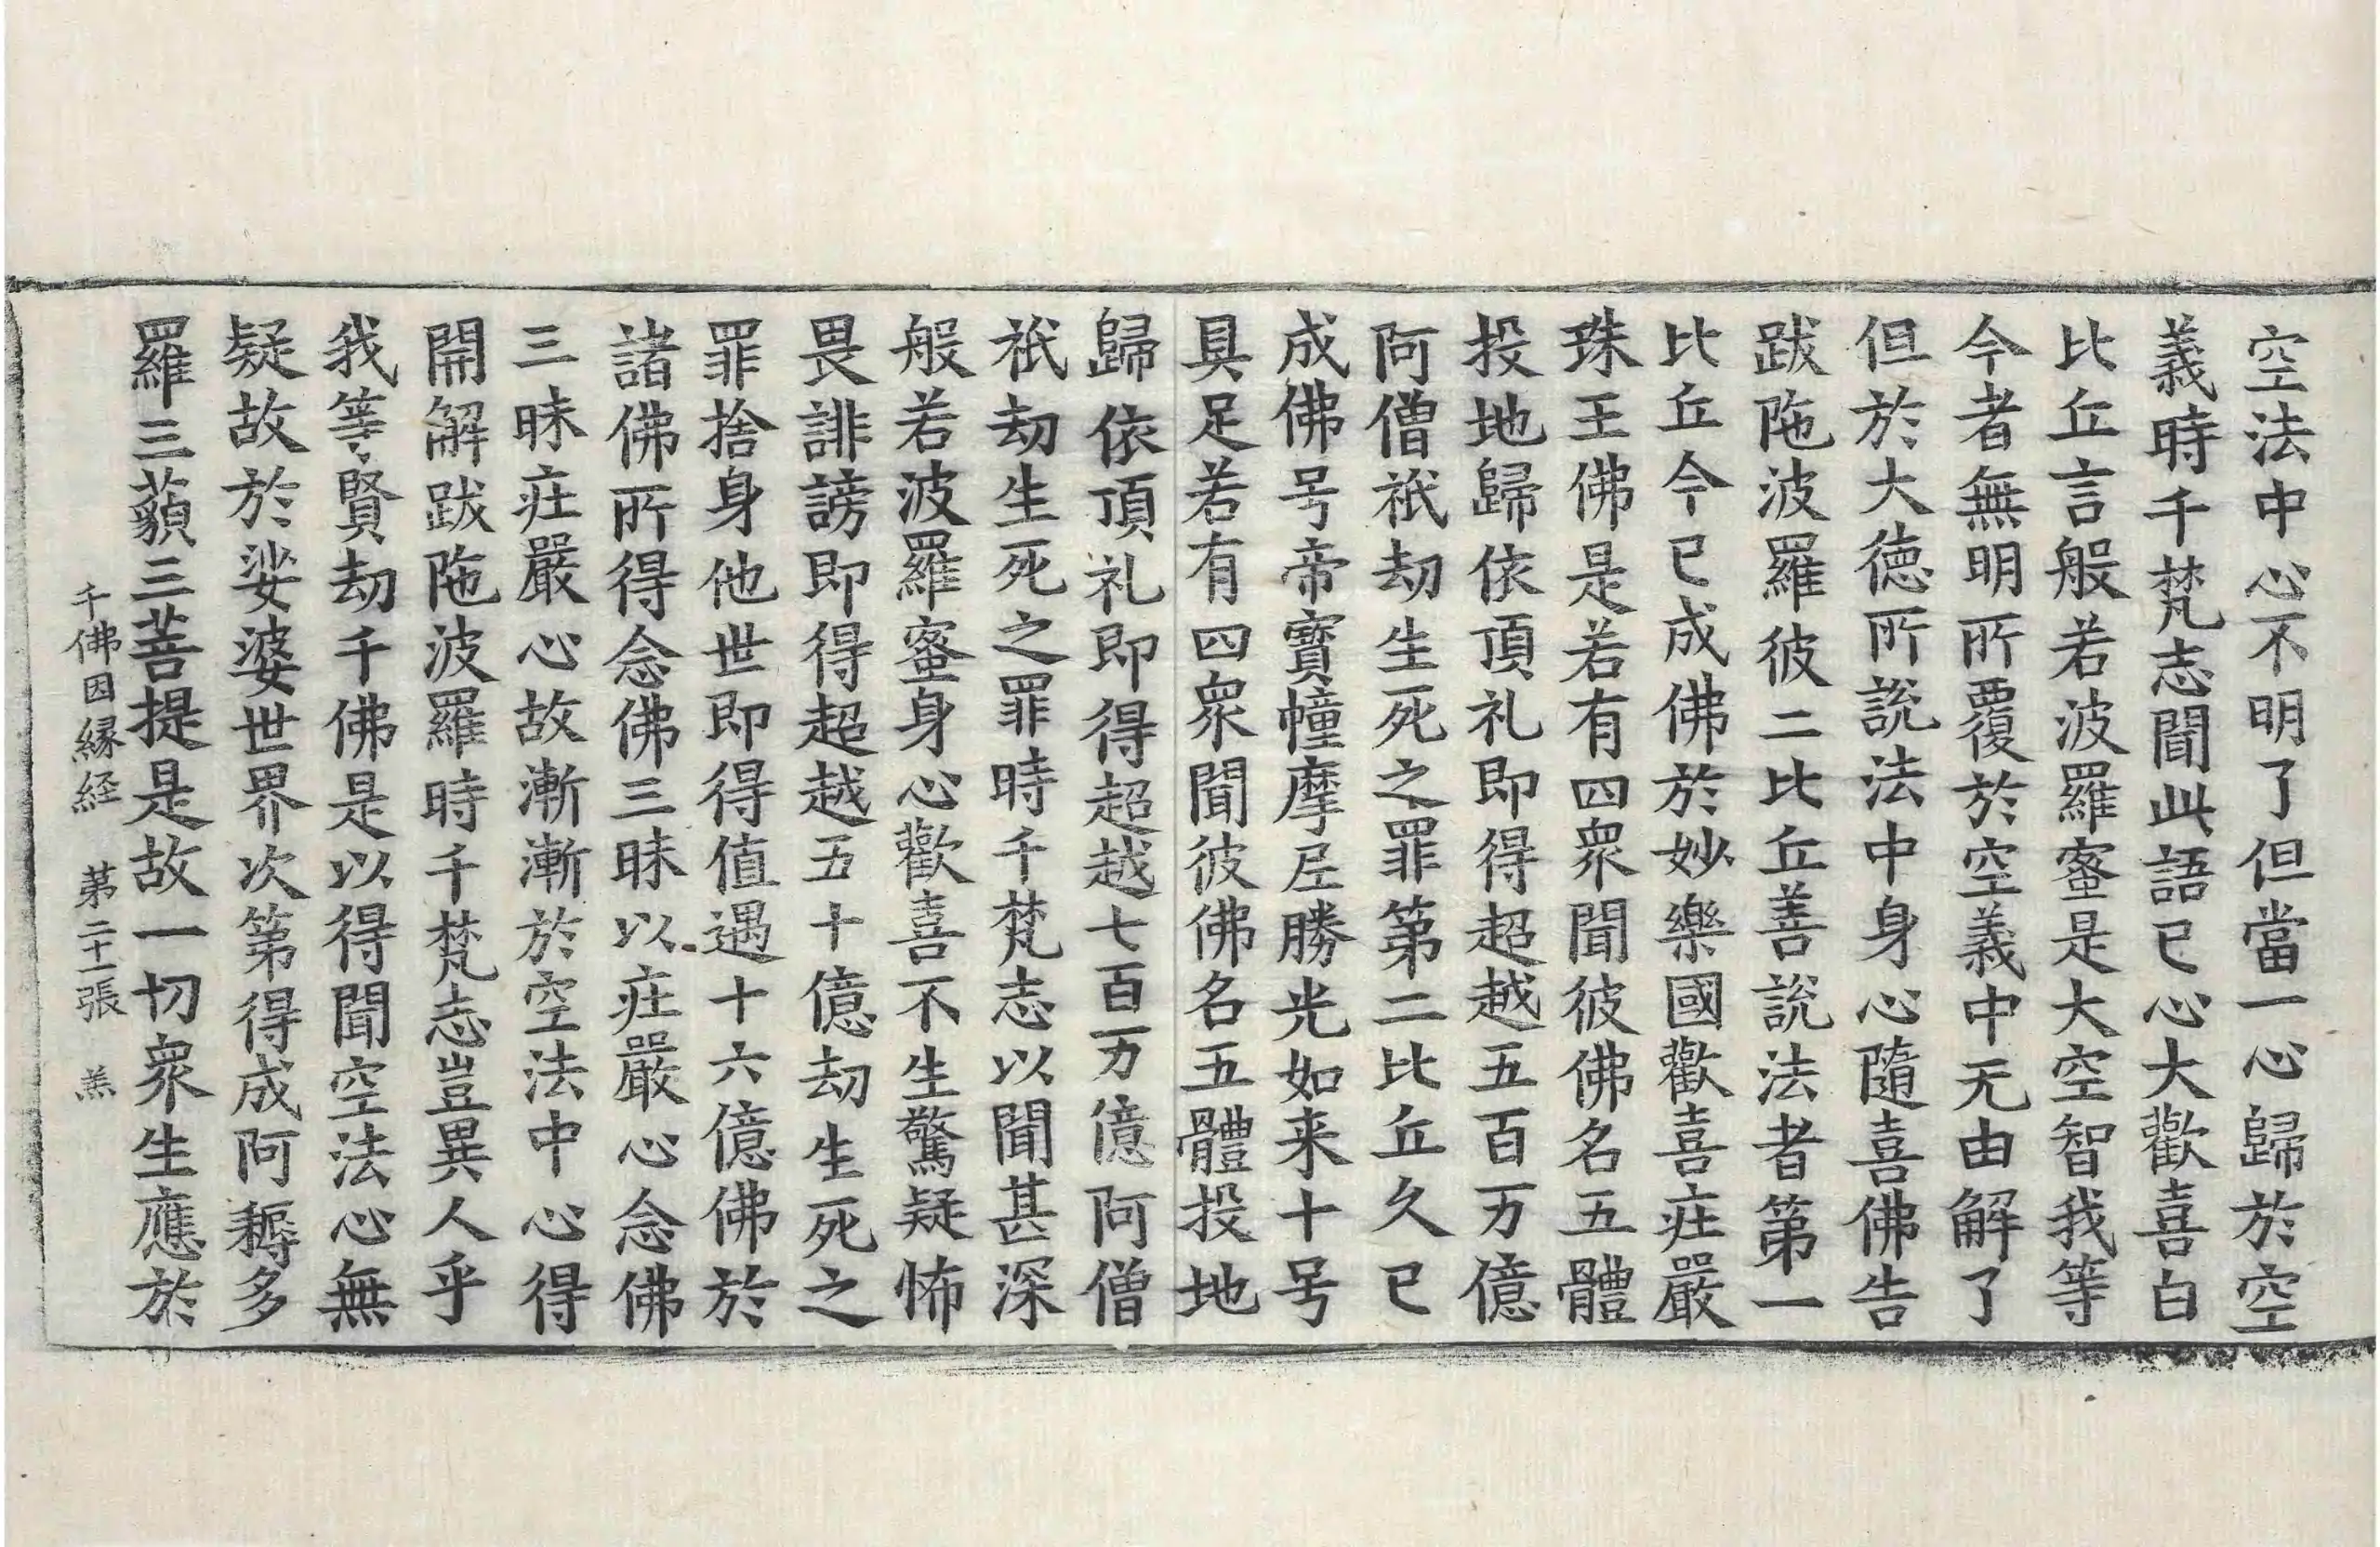 空法中心不明了但當一心歸於空
義時千梵志聞此語已心大歡喜白
比丘言般若波羅蜜是大空智我等
今者無明所覆於空義中无由解了
但於大德所說法中身心隨喜佛告
跋陁波羅彼二比丘善說法者第一
比丘今已成佛於妙樂國歡喜莊嚴
珠王佛是若有四衆聞彼佛名五體
投地歸依頂礼即得超越五百万億
阿僧祇劫生死之罪第二比丘久已
成佛号帝寶幢摩尼勝光如来十号
具足若有四衆聞彼佛名五體投地
歸依頂礼即得超越七百万億阿僧
祇劫生死之罪時千梵志以聞甚深
般若波羅蜜身心歡喜不生驚疑怖
畏誹謗即得超越五十億劫生死之
罪捨身他世即得值遇十六億佛於
諸佛所得念佛三昧以莊嚴心念佛
三昧莊嚴心故漸漸於空法中心得
開解跋陁波羅時千梵志豈異人乎
我等賢劫千佛是以得聞空法心無
疑故於娑婆世界次第得成阿耨多
羅三藐三菩提是故一切衆生應於
千佛因緣経 第二十一張 羔